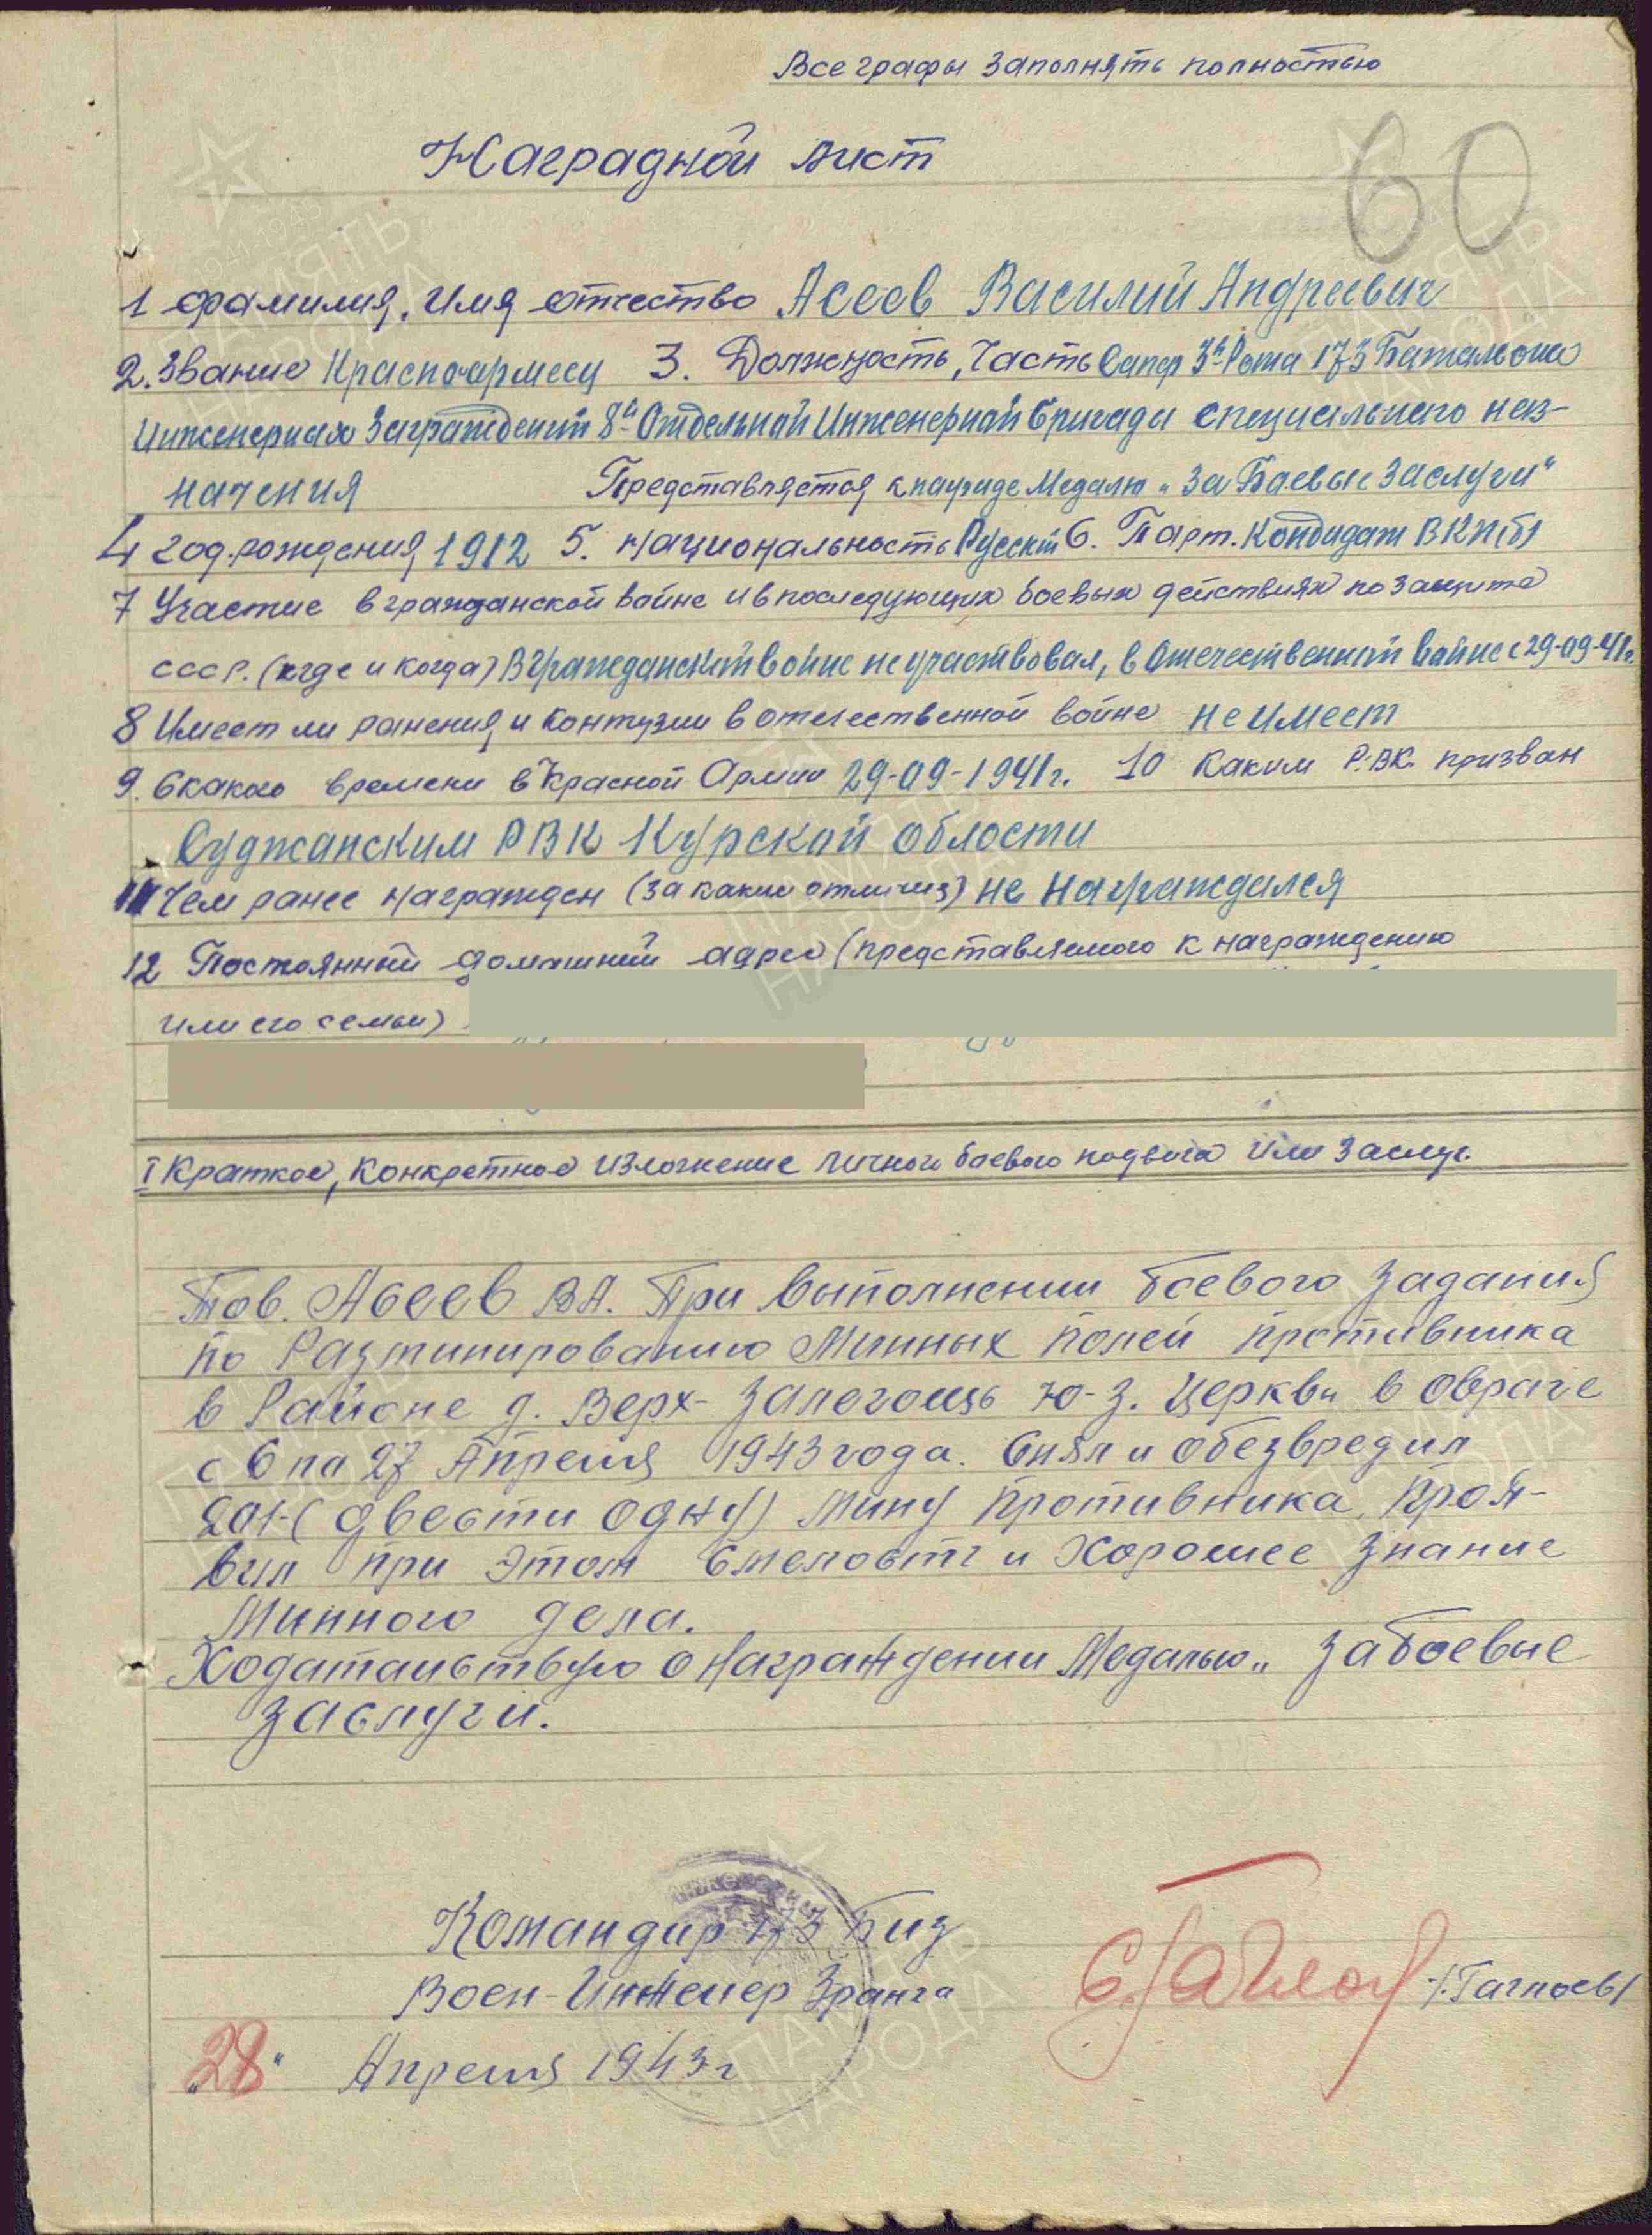 Все графы заполнять полностью
60
Наградной лист
1 Фамилия, Имя отчество Асеев Василий Андреевич
2. Звание Красноармеец 3. Должность, часть Сапер 3й Роты 173 Батальона
Инженерных Заграждений 8й Отдельной Инженерной Бригады специального наз-
начения Представляется к награде Медалю „За Боевые Заслуги"
4 год рождения 1912 5. Национальность Русский 6. Парт. Кандидат ВКП(б)
7 Участие в гражданской войне и в последующих боевых действиях по защите
СССР. (где и когда) В Гражданской войне не участвовал, в Отечественной войне с 29-09-41г.
8 Имеет ли ранения и контузии в отечественной войне не имеет
9. С какого времени в Красной Армии 29-09-1941г. 10 Каким Р.В.К. призван
Суджанским РВК Курской области
11 Чем ранее награжден (за какие отличия) не награждался
12 Постоянный домашний адрес (представляемого к награждению
или его семьи)
I Краткое, конкретное изложение личного боевого подвига или заслуг.
Тов. Асеев В.А. При выполнении боевого задания
по Разминированию Минных полей противника
в Районе д. Верх-Залегощь Ю-З. Церкви в овраге
с 6 по 27 Апреля 1943 года. Снял и обезвредил
201-(двести одну) Мину противника, проя-
вил при этом смелость и Хорошее знание
Минного дела.
Ходатайствую о Награждении Медалью „За боевые
заслуги.
Командир 173 Биз
Воен-Инженер 3 ранга
„28" Апреля 1943г
ПАМЯТЬ
НАРОДА
1941-1945